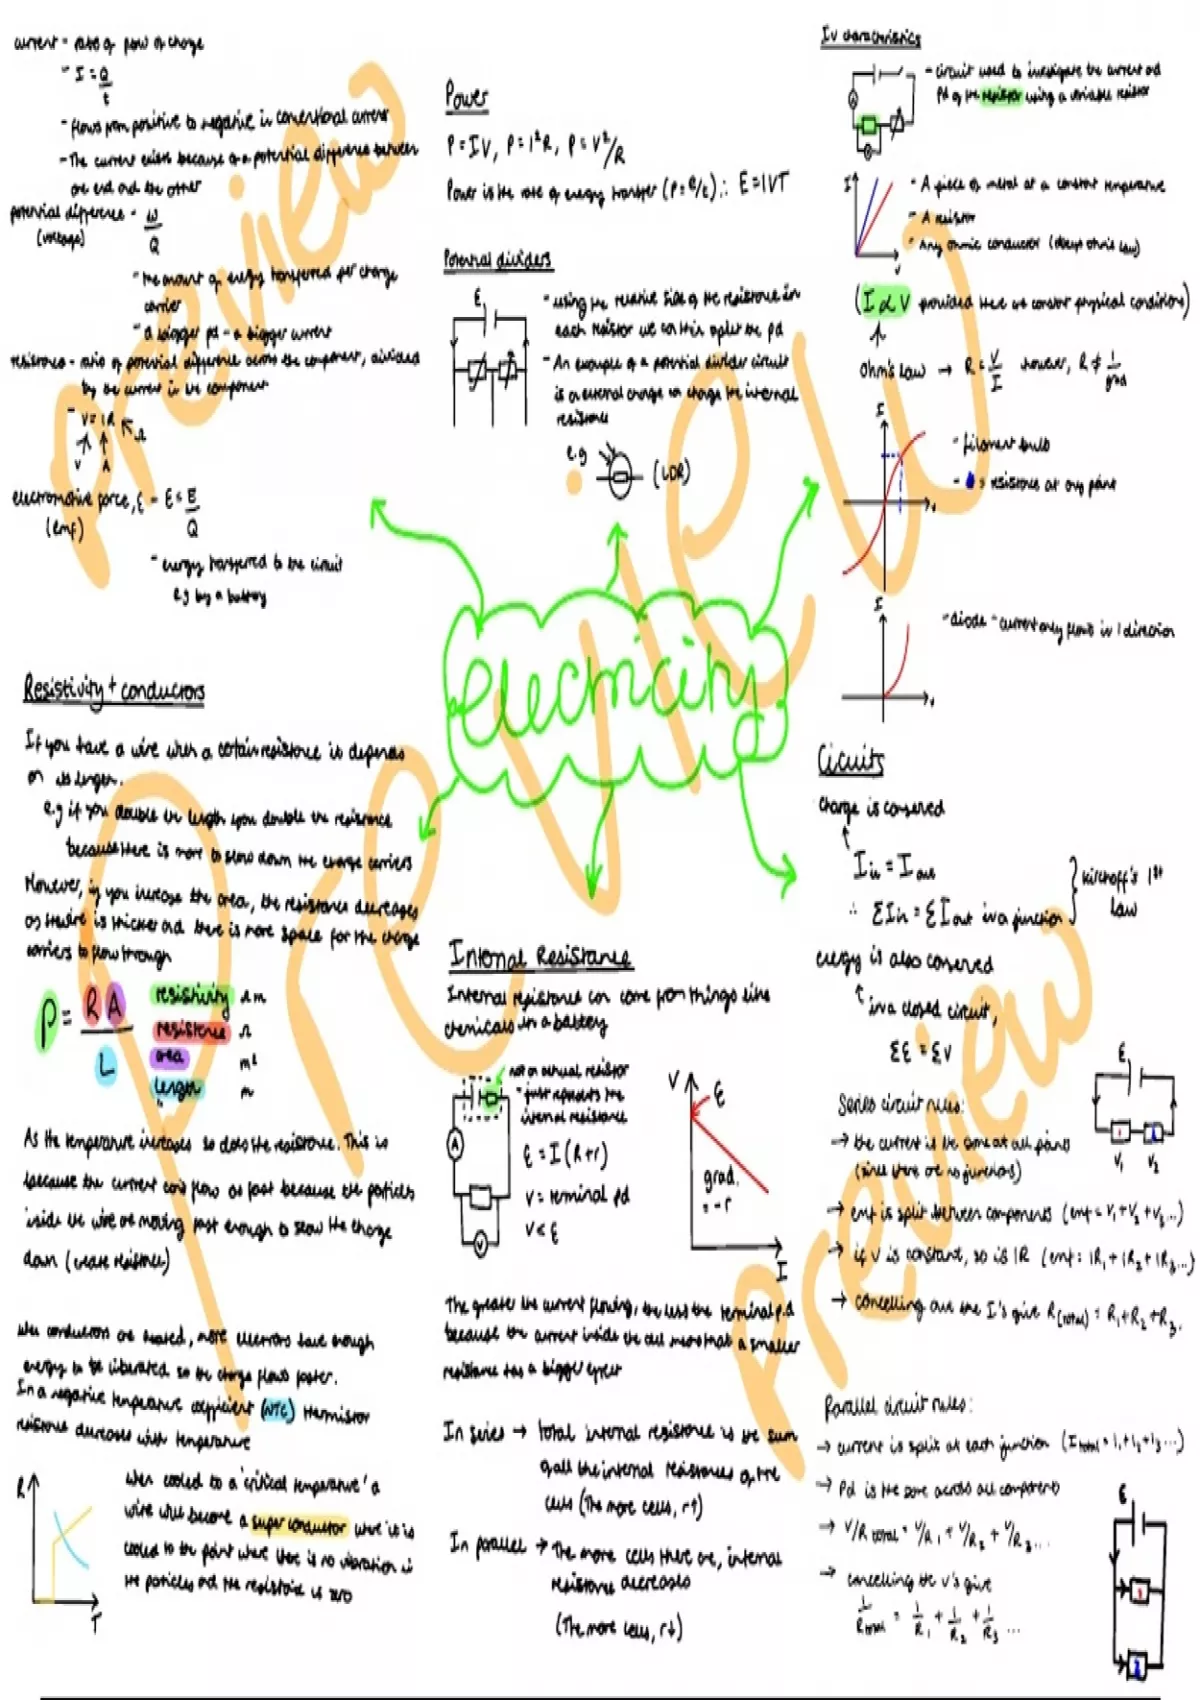 current - rate of flow of charge
- I = Q/t
- flows from positive to negative in conventional current
- The current exists because of a potential difference between
one end and the other
potential difference - W/Q
(voltage)
- the amount of energy transferred per charge
carrier
- a bigger pd = a bigger current
resistance - ratio of potential difference across the component, divided
by the current in the component
- V = IR Ω
V A
electromotive force, ε - ε = E/Q
(emf)
- energy transferred to the circuit
e.g by a battery
Resistivity + conductors
If you have a wire with a certain resistance it depends
on its length.
e.g if you double the length you double the resistance
because there is more to slow down the charge carriers
However, if you increase the area, the resistance decreases
as the wire is thicker and there is more space for the charge
carriers to flow through
ρ = RA/L
resistivity Ωm
resistance Ω
area m²
length m
As the temperature increases so does the resistance. This is
because the current can't flow as fast because the particles
inside the wire are moving fast enough to slow the charge
down (create resistance)
when conductors are heated, more electrons have enough
energy to be liberated so the charge flows faster.
In a negative temperature coefficient (NTC) thermistor
resistance decreases with temperature
R
T
when cooled to a 'critical temperature' a
wire will become a superconductor where it is
cooled to the point where there is no vibration in
the particles and the resistance is zero
Power
P = IV, P = I²R, P = V²/R
Power is the rate of energy transfer (P = E/t) ∴ E = IVT
Potential dividers
ε
- using the relative size of the resistance in
each resistor we can split the pd
- An example of a potential divider circuit
is an external change can change the internal
resistance
e.g (LDR)
electricity
Internal Resistance
Internal resistance can come from things like
chemicals in a battery
not an actual resistor
- just represents the
internal resistance
A
V
ε = I (R+r)
V = terminal pd
V < ε
V
ε
grad.
= -r
I
The greater the current flowing, the less the terminal p.d
because the current inside the cell means that a smaller
resistance has a bigger effect
In series → total internal resistance is the sum
of all the internal resistances of the
cells (The more cells, r↑)
In parallel → The more cells there are, internal
resistance decreases
(The more cells, r↓)
IV characteristics
- circuit used to investigate the current and
pd of the resistor using a variable resistor
A
I
V
- A piece of metal at a constant temperature
- A resistor
- Any ohmic conductor (obeys ohm's law)
(I ∝ V provided there are constant physical conditions)
Ohm's law → R = V/I however, R ≠ 1/grad
I
V
- filament bulb
- resistance at any point
I
V
- diode - current only flows in 1 direction
Cicuits
charge is conserved
I in = I out
∴ ΣI in = ΣI out in a junction
Kirchoff's 1st
law
energy is also conserved
in a closed circuit,
Σε = ΣV
Series circuit rules:
ε
V₁ V₂
→ the current is the same at all points
(since there are no junctions)
→ emf is split between components (emf = V₁ + V₂ + V₃...)
→ if V is constant, so is IR (emf = IR₁ + IR₂ + IR₃...)
→ cancelling out the I's give R(total) = R₁ + R₂ + R₃.
Parallel circuit rules:
→ current is split at each junction (I total = I₁ + I₂ + I₃...)
→ Pd is the same across all components
→ V/R total = V/R₁ + V/R₂ + V/R₃...
→ cancelling the V's give
1/R total = 1/R₁ + 1/R₂ + 1/R₃ ...
ε
Preview
Preview
Preview